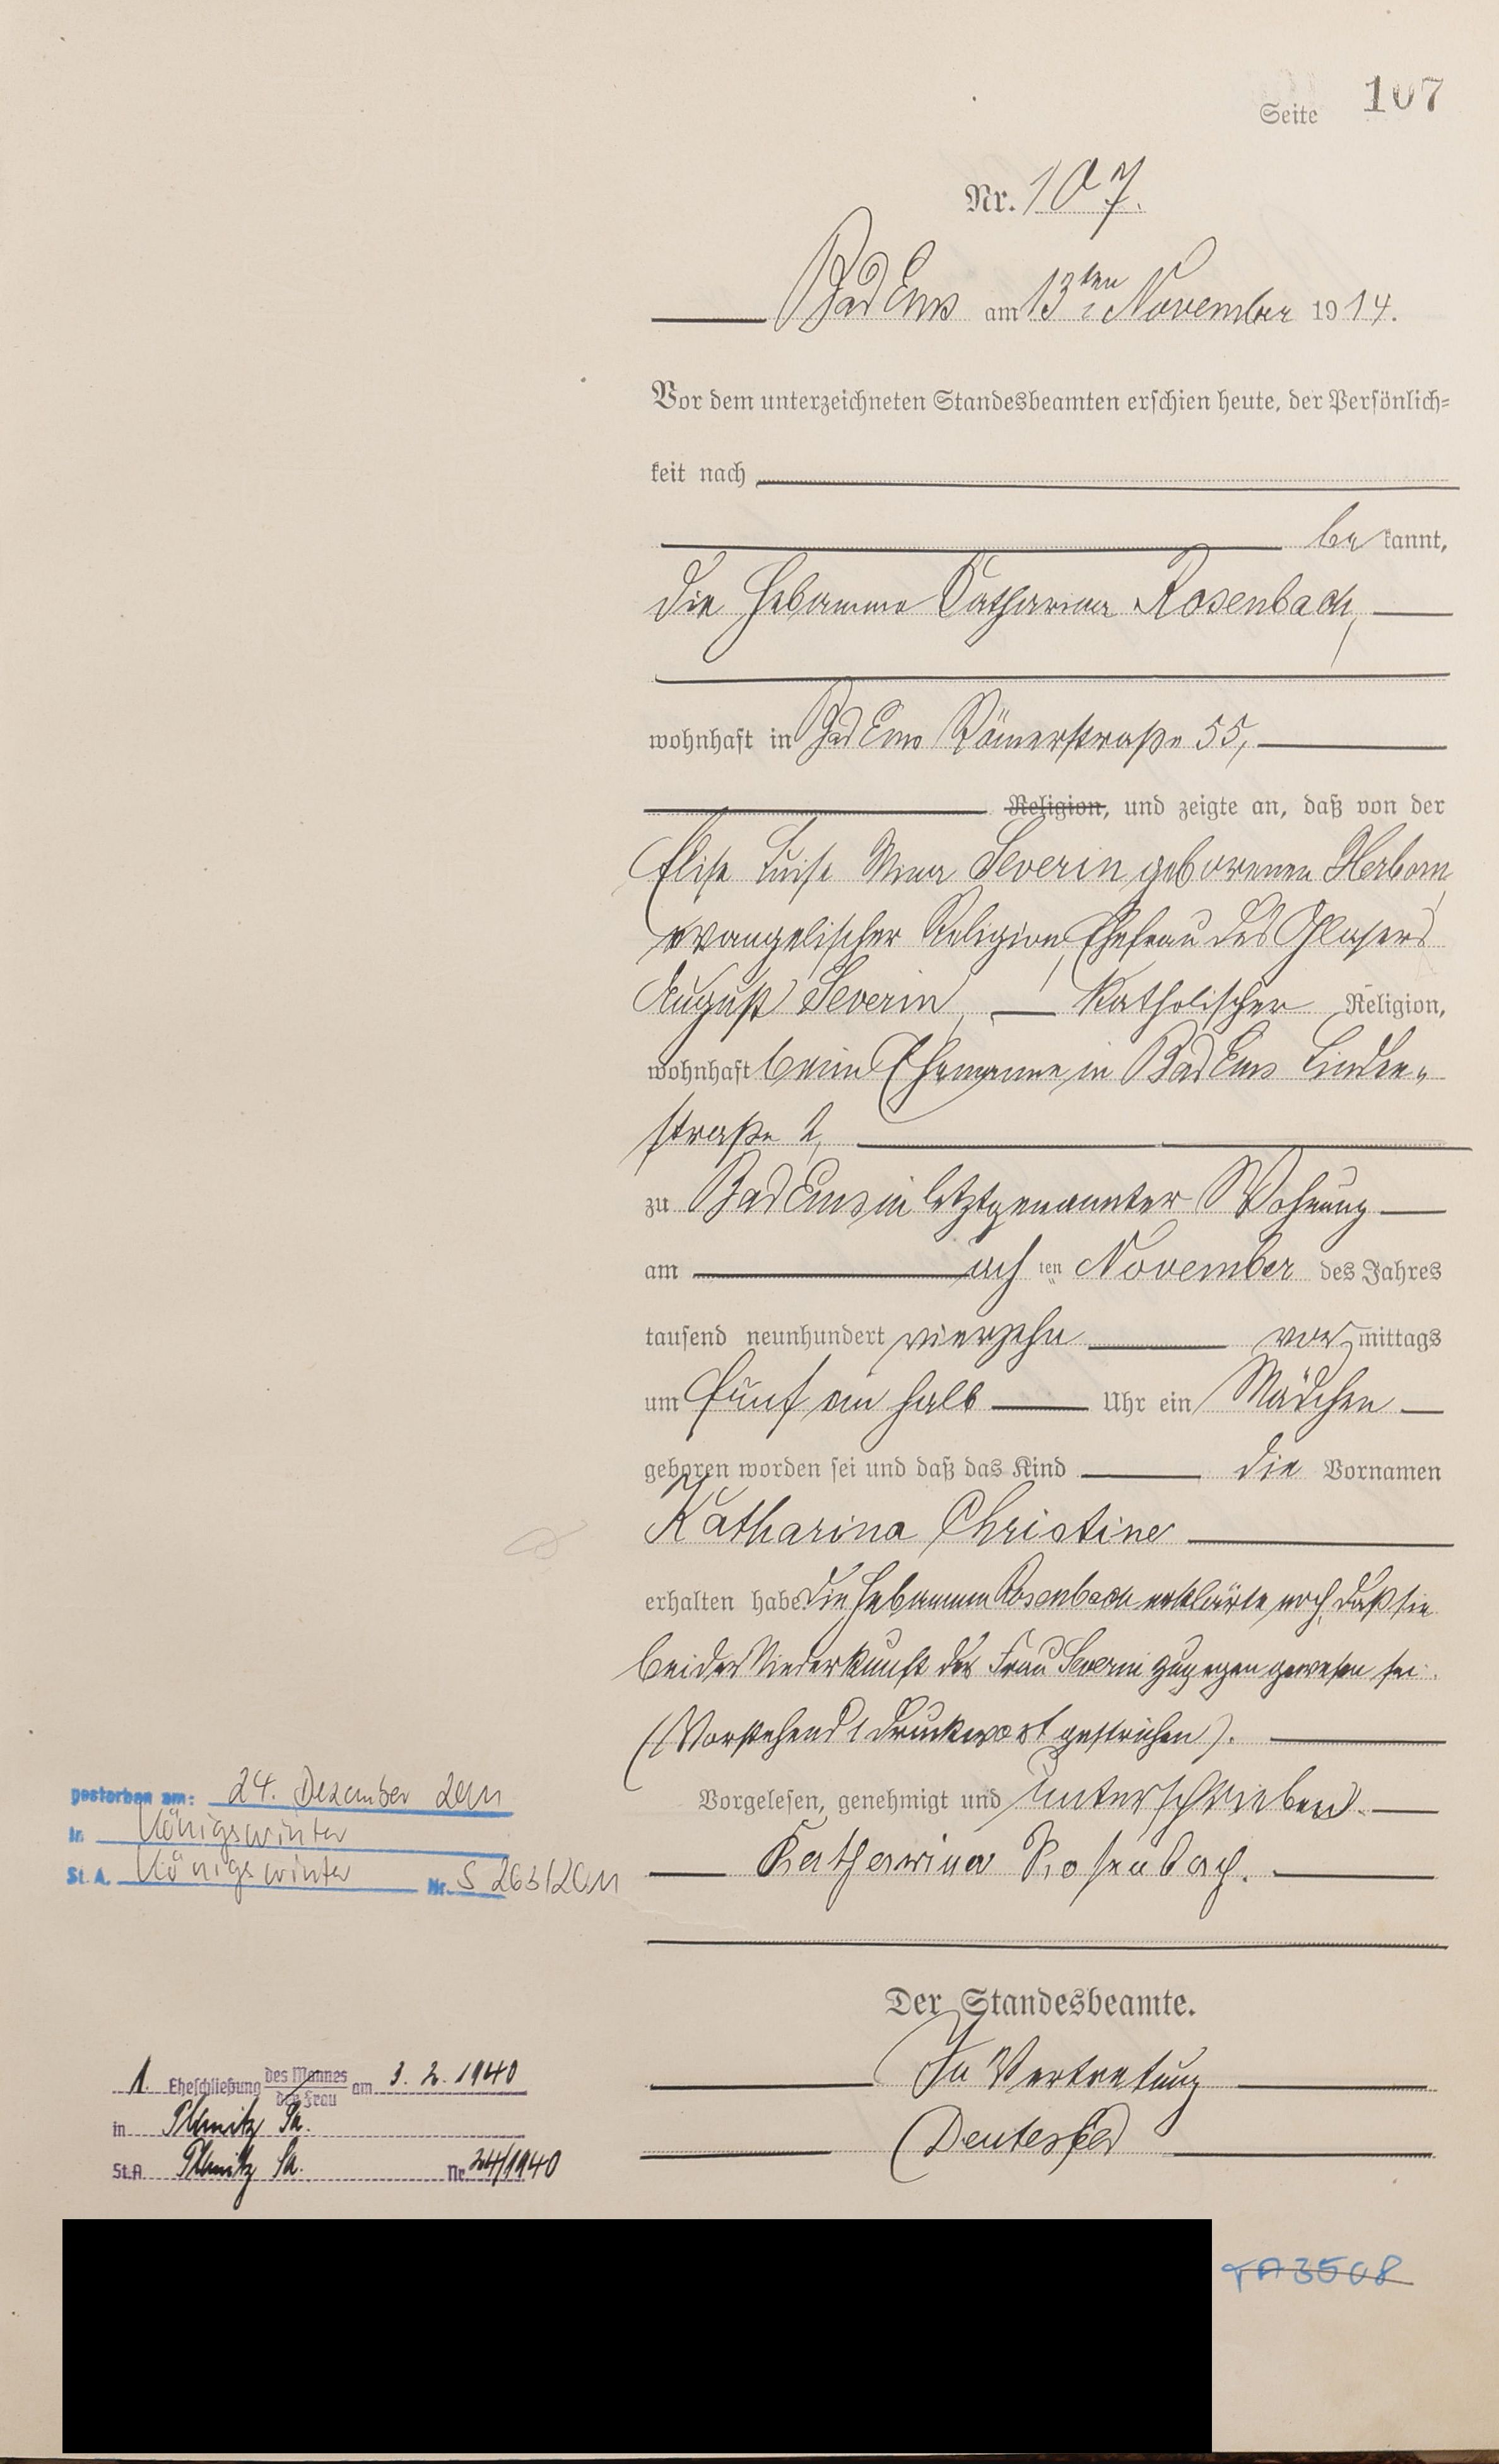 Seite 107
Nr. 107.
Bad Ems am 13ten November 1914.
Vor dem unterzeichneten Standesbeamten erschien heute, der Persönlich-
keit nach
be kannt,
die Hebamme Katharina Rosenbach,
wohnhaft in Bad Ems Römerstraße 55,
Religion, und zeigte an, daß von der
Elise Luise Mina Severin geborenen Herborn,
evangelischer Religion, Ehefrau des Glasers
August Severin, katholischer Religion,
wohnhaft beim Ehemanne in Bad Ems Linden-
straße 2,
zu Bad Ems in letztgenannter Wohnung
am ach ten November des Jahres
tausend neunhundert vierzehn vor mittags
um fünf ein halb Uhr ein Mädchen
geboren worden sei und daß das Kind die Vornamen
Katharina Christine
erhalten habe. Die Hebamme Rosenbach erklärte noch, daß sie
bei der Niederkunft der Frau Severin zugegen gewesen sei.
(Vorstehend 1 Druckwort gestrichen).
Vorgelesen, genehmigt und unterschrieben.
Katharina Rosenbach.
Der Standesbeamte.
In Vertretung
gestorben am: 24. Dezember 2011
in Königswinter
St. A. Königswinter Nr. S 263/2011
1. Eheschließung des Mannes der Frau am 3. 2. 1940
in Sa.
St.A Sa. Nr. 24/1940
TA 3508